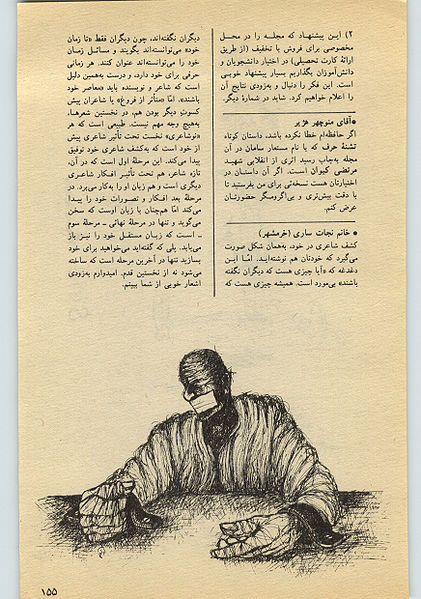 ۲) ایـن پیشنهـاد که مجلـه را در محـل
مخصوصی برای فروش با تخفیف (از طریق
ارائهٔ کارت تحصیلی) در اختیار دانشجویان و
دانش‌آموزان بگذاریم بسیار پیشنهاد خوبـی
است. این فکر را دنبال و به‌زودی نتایج آن
را اعلام خواهیم کرد. شاید در شمارهٔ دیگر.
●آقای منوچهر هژبر
اگر حافظه‌ام خطا نکرده باشد، داستان کوتاه
تشنهٔ حرف که با نام مستعار سامان در آن
مجله به‌چاپ رسید اثری از انقلابی شهیـد
مرتضی کیوان است. اگر آن داستـان در
اختیارتان هست نسخه‌ئی برای من بفرستید تا
با دقت بیش‌تری و بی‌اگرومگر حضورتـان
عرض کنم.
● خانم نجات ساری (خرمشهر)
کشف شاعری در خود، به‌همان شکل صورت
می‌گیرد که خودتان هم نوشته‌ایـد. امّا ایـن
دغدغه که «آیا چیزی هست که دیگران نگفته
باشند» بی‌مورد است. همیشه چیزی هست که
دیگران نگفته‌اند، چون دیگران فقط «تا زمان
خود» می‌توانسته‌اند بگویند و مسائـل زمـان
خود را می‌توانسته‌اند عنوان کنند. هر زمانی
حرفی برای خود دارد، و درست به‌همین دلیل
است که شاعر و نویسنده باید «معاصر خود
باشند». امّا «متأثر از فروغ» یا شاعران پیش
کسوتِ دیگر بودن هم، در نخستین شعرهـا،
به‌هیچ وجه مهم نیست. طبیعی است که هر
«نوشاعری» نخست تحت تأثیر شاعری پیش
از خود است که به‌کشف شاعری خود توفیق
پیدا می‌کند. این مرحلهٔ اول است که در آن،
تازه شاعر، هم تحت تأثیـر افکـار شاعـری
دیگری است و هم زبان او را به‌کار می‌برد. در
مرحلهٔ بعد افکار و تصورات خود را پیـدا
می‌کند امّا هم‌چنان با زبان اوست که سخن
می‌گوید و تنها در مرحلهٔ نهائی ـ مرحلهٔ سوم
ـ است که زبان مستقل خود را نیـز باز
می‌یابد. پلی که گفته‌اید می‌خواهید برای خود
بسازید تنها در آخرین مرحله است که ساخته
می‌شود نه از نخستین قدم. امیدوارم به‌زودی
اشعار خوبی از شما ببینم.
۱۵۵